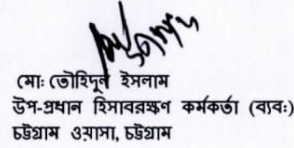 মো: তৌহিদুল ইসলাম
উপ-প্রধান হিসাবরক্ষণ কর্মকর্তা (ব্যব:)
চট্টগ্রাম ওয়াসা, চট্টগ্রাম